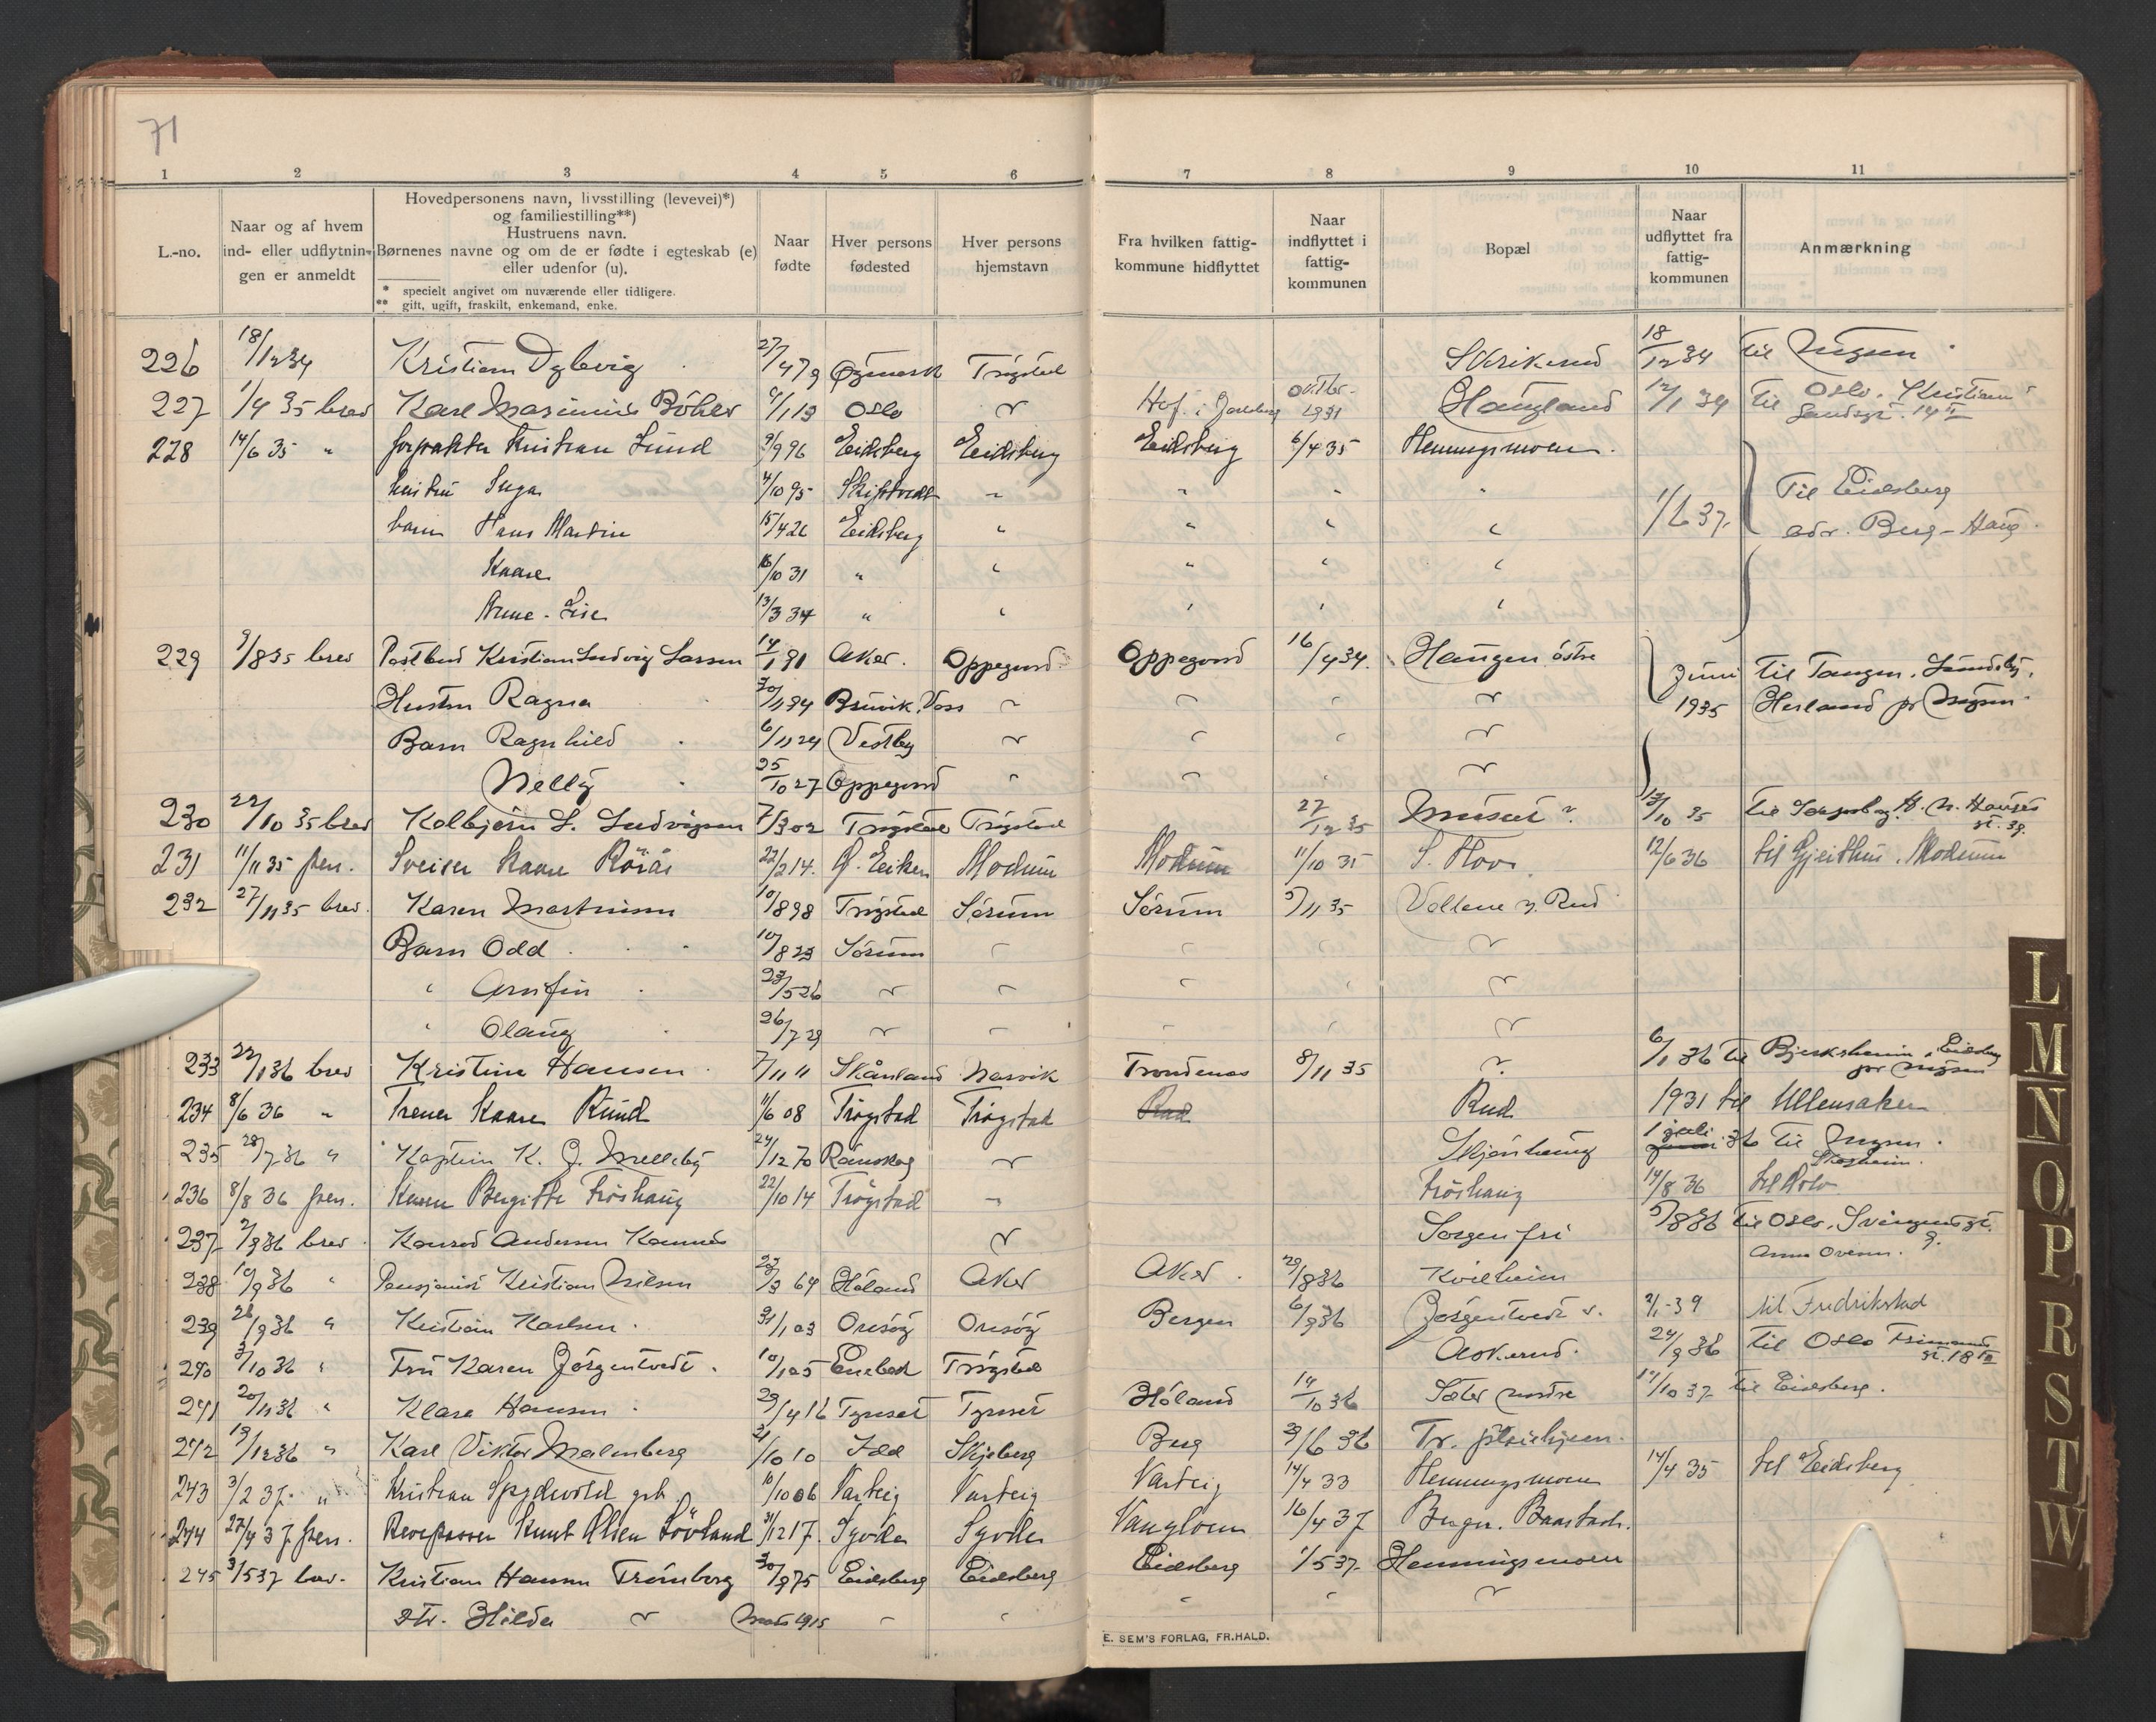 71
1 2 3 4 5 6 7 8 9 10 11
L.-no.
Naar og af hvem ind- eller udflytnin- gen er anmeldt
Hovedpersonens navn, livsstilling (levevei)*) og familiestilling**) Hustruens navn. Børnenes navne og om de er fødte i egteskab (e) eller udenfor (u).
* specielt angivet om nuværende eller tidligere.
** gift, ugift, fraskilt, enkemand, enke.
Naar fødte
Hver persons fødested
Hver persons hjemstavn
Fra hvilken fattig- kommune hidflyttet
Naar indflyttet i fattig- kommunen
Bopæl
Naar udflyttet fra fattig- kommunen
Anmærkning
226 18/12 34 Kristian Dybevig 27/4 79 Øymark Trøgstad Skrikerud 18/12 34 til Mysen
227 1/4 35 brev Karl Marinius Böhler 4/1 13 Oslo " Hof i 1931 Haugland 12/1 34 til Oslo. Kristian Lundsgt. 14 II
228 14/6 35 " forpakter Kristian Lund 9/9 96 Eidsberg Eidsberg Eidsberg 6/4 35 Henningsmoen.
hustru Inga 4/10 95 Skiptvedt " " " " 1/6 37. Til Eidsberg
barn Hans Martin 15/4 26 Eidsberg " " " " adr. Berg - Haug.
Kaare 16/10 31 " " " " "
Anne-Lise 13/3 34 " " " " "
229 9/8 35 brev Postbud Kristian Ludvig Larsen 14/1 91 Aker. Oppegård Oppegård 16/4 34. Haugen östre Juni til Tangen, Lundeby,
Hustru Ragna 30/1 94 Bruvik, Voss " " " " 1935 Herland pr Mysen.
Barn Ragnhild 6/11 24 Vestby " " " "
Nelly 25/10 27 Oppegård " " " "
230 22/10 35 brev Kolbjörn L. Ludvigsen 7/3 02 Trøgstad Trøgstad 27/12 35 ? 13/10 35 til H. N. Hauges gt. 39.
231 11/11 35 pers. Sveiser Kaare Röraas 22/2 14. Ø. Eiker Modum Modum 11/10 35 S. Hov. 12/6 36 til Gjeithus, Modum
232 27/11 35 brev. Karen Martinsen 10/8 98 Trøgstad Sörum Sörum 5/11 35 Vollene u. Rud
Barn Odd. 10/8 23 Sörum " " " "
" Arnfin 23/5 26 " " " " "
" Olaug 26/7 29 " " " " "
233 22/1 36 brev Kristine Hansen 7/11 11 Skånland Narvik Trondenes 8/11 35 ? 6/1 36 til Bjerksheim, Eidsberg pr Mysen
234 8/6 36 " Trener Kaare Rund 11/6 08 Trøgstad Trøgstad Rud Rud 1931 til Ullensaker
235 28/7 36 " Kaptein K. J. Melleby 24/12 70 Rømskog " Skjönhaug 1 juli 36 til Mysen. Skogheim.
236 8/8 36 pers. Karen Bergitte Fröshaug 22/10 14 Trøgstad " Fröshaug 14/8 36 til Oslo
237 2/9 36 brev Konrad Andersen Kamnes " Sorgenfri 5/8 36 til Oslo,
238 10/9 36 " Pensjonist Kristian Nilsen 23/3 64 Höland Aker Aker. 29/8 36 Kvilheim
239 26/9 36 " Kristian Karlsen. 31/1 03 Onsöy Onsöy Bergen 6/9 36 Jörgentvedt s. 2/1-39 til Fredrikstad
240 3/10 36 " Fru Karen Jörgentvedt. 10/1 05 Enebak Trøgstad Askerud. 24/9 36 til Oslo gt. 18 III
241 20/11 36 " Klara Hansen. 29/4 16 Tynset Tynset Höland 14/10 36 Sæter nordre 14/10 37 til Eidsberg.
242 19/12 36 " Karl Viktor Malmberg 21/10 10 Idd Skjeberg Berg 29/6 36 Tr. pleiehjem.
243 3/2 37. " Kristian Spydevold grb 10/10 06 Varteig Varteig Varteig 14/4 33 Henningsmoen 14/4 35 til Eidsberg
244 27/4 37 pers. Revepasser Knut Olsen Lövland 31/12 17. Syvde Syvde Vanylven 16/4 37 Baastad.
245 31/5 37 brev. Kristian Hansen Trömborg 30/9 75 Eidsberg Eidsberg Eidsberg 1/5 37. Henningsmoen
Htr. Hilda " 1915 " " " " "
E. SEM'S FORLAG, FR.HALD.
L
M
N
O
P
R
S
T
W